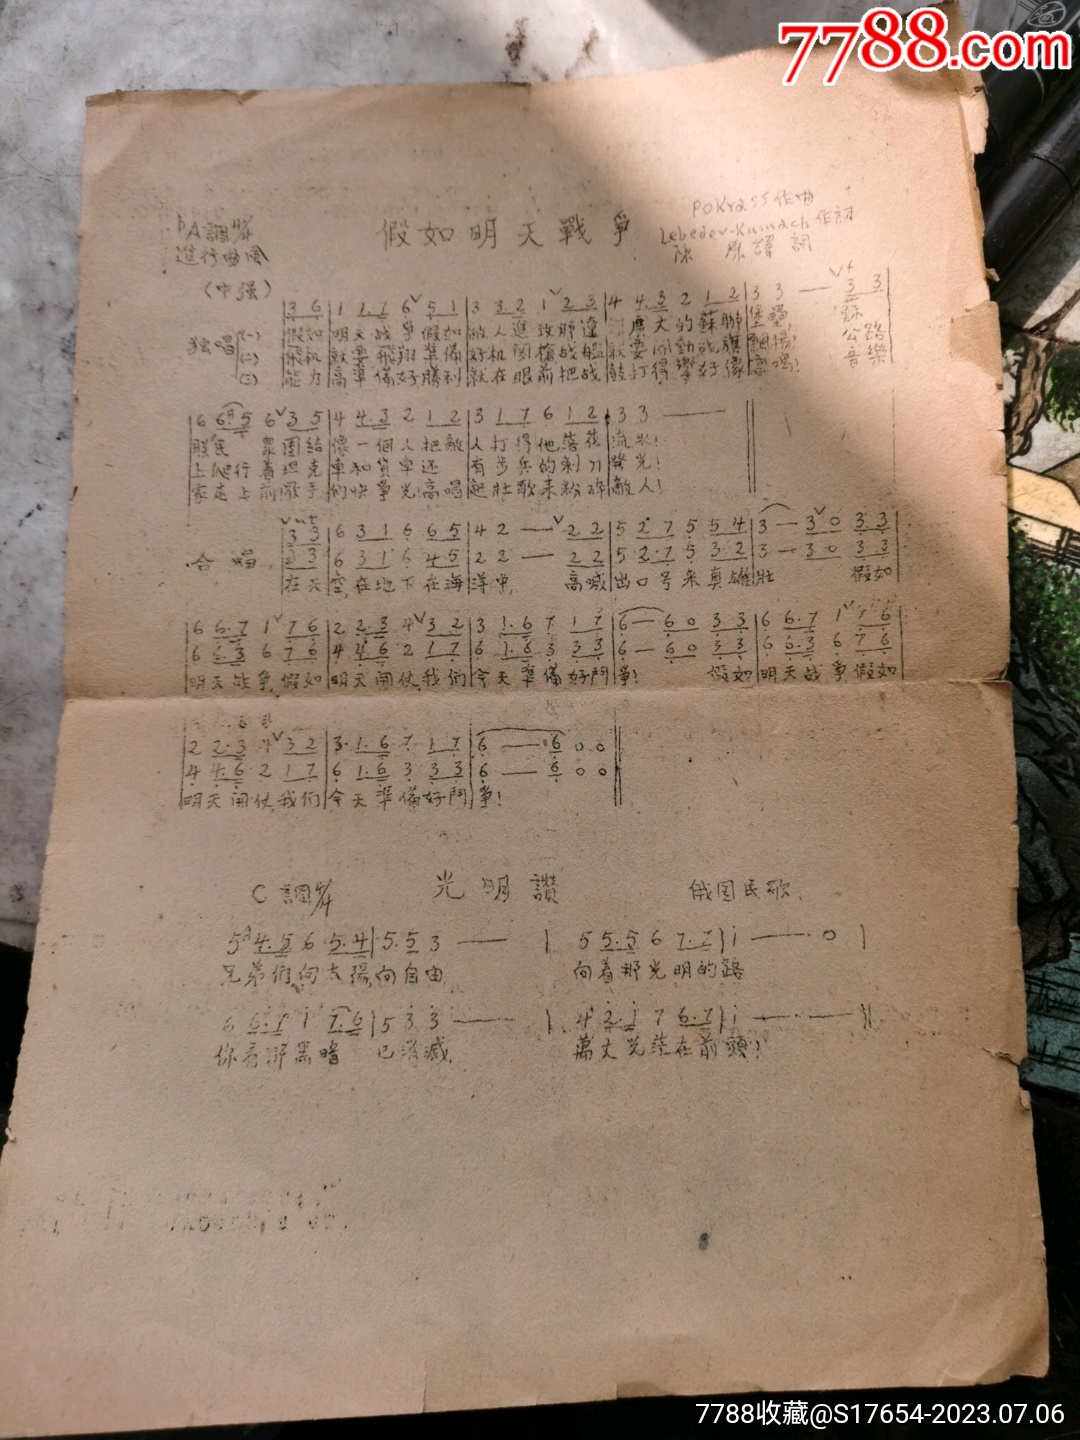 7788.com
假如明天戰爭
POKrass作曲
Lebedev-Kumach作詞
陳原譯詞
A調
進行曲風
(中強)
3 6 1 1 . 1 6 5 1 3 3 . 2 1 2 3 4 4 . 3 2 1 2 3 3 — 3 3
独唱 (一) 假如 明天战爭假如 敵人進攻那遠 大的蘇聯 堡壘
(二) 飛机 就要飛翔準備 好机関槍战艦 就要開動战旗 公路
(三) 能力 高準備好勝利 就在眼前把战 鼓打得響好像 音樂
6 6 5 6 3 5 4 4 . 3 2 1 2 3 1 . 7 6 1 2 3 3 —
民 衆團結 像一個人把敵 人打得他落花 流水!
上爬行着坦克 車和貨車还 有步兵的刺刀 發光!
家走上前 手 們快爭光高唱 起壯歌来粉碎 敵人!
3 3 6 3 1 6 6 5 4 2 — 2 2 5 2 . 7 5 5 4 3 — 3 0 3 3
合唱 3 3 6 3 1 6 4 5 2 2 — 2 2 5 2 . 7 5 3 . 2 3 — 3 0 3 3
在天 空,在地下在海 洋中, 高喊 出口号来真雄 壯 假如
6 6 . 7 1 7 6 2 2 . 3 4 3 2 3 1 . 6 7 1 7 6 — 6 0 3 3 6 6 . 7 1 7 6
6 6 . 3 6 7 6 4 4 . 6 2 1 7 6 1 . 6 3 3 3 6 — 6 0 3 3 6 6 . 3 6 7 6
明天战爭,假如 明天開仗,我們 今天準備好鬥 爭! 假如 明天战爭假如
2 2 . 3 4 3 2 3 . 1 . 6 7 1 7 6 — 6 0 0
4 4 . 6 2 1 7 6 1 . 6 3 3 3 6 — 6 0 0
明天開仗,我們 今天準備好鬥 爭!
C調 光明讚 俄国民歌
5 4 . 5 6 5 . 4 5 . 5 3 — 5 5 . 5 6 7 . 7 i — . 0
兄弟們向太陽,向自由 向着那光明的路
6 6 . 7 i 7 . 6 5 3 3 — 4 2 . i 7 6 . 7 i — . —
你看那黑暗 已消滅, 萬丈光芒在前頭!
7788收藏@S17654-2023.07.06